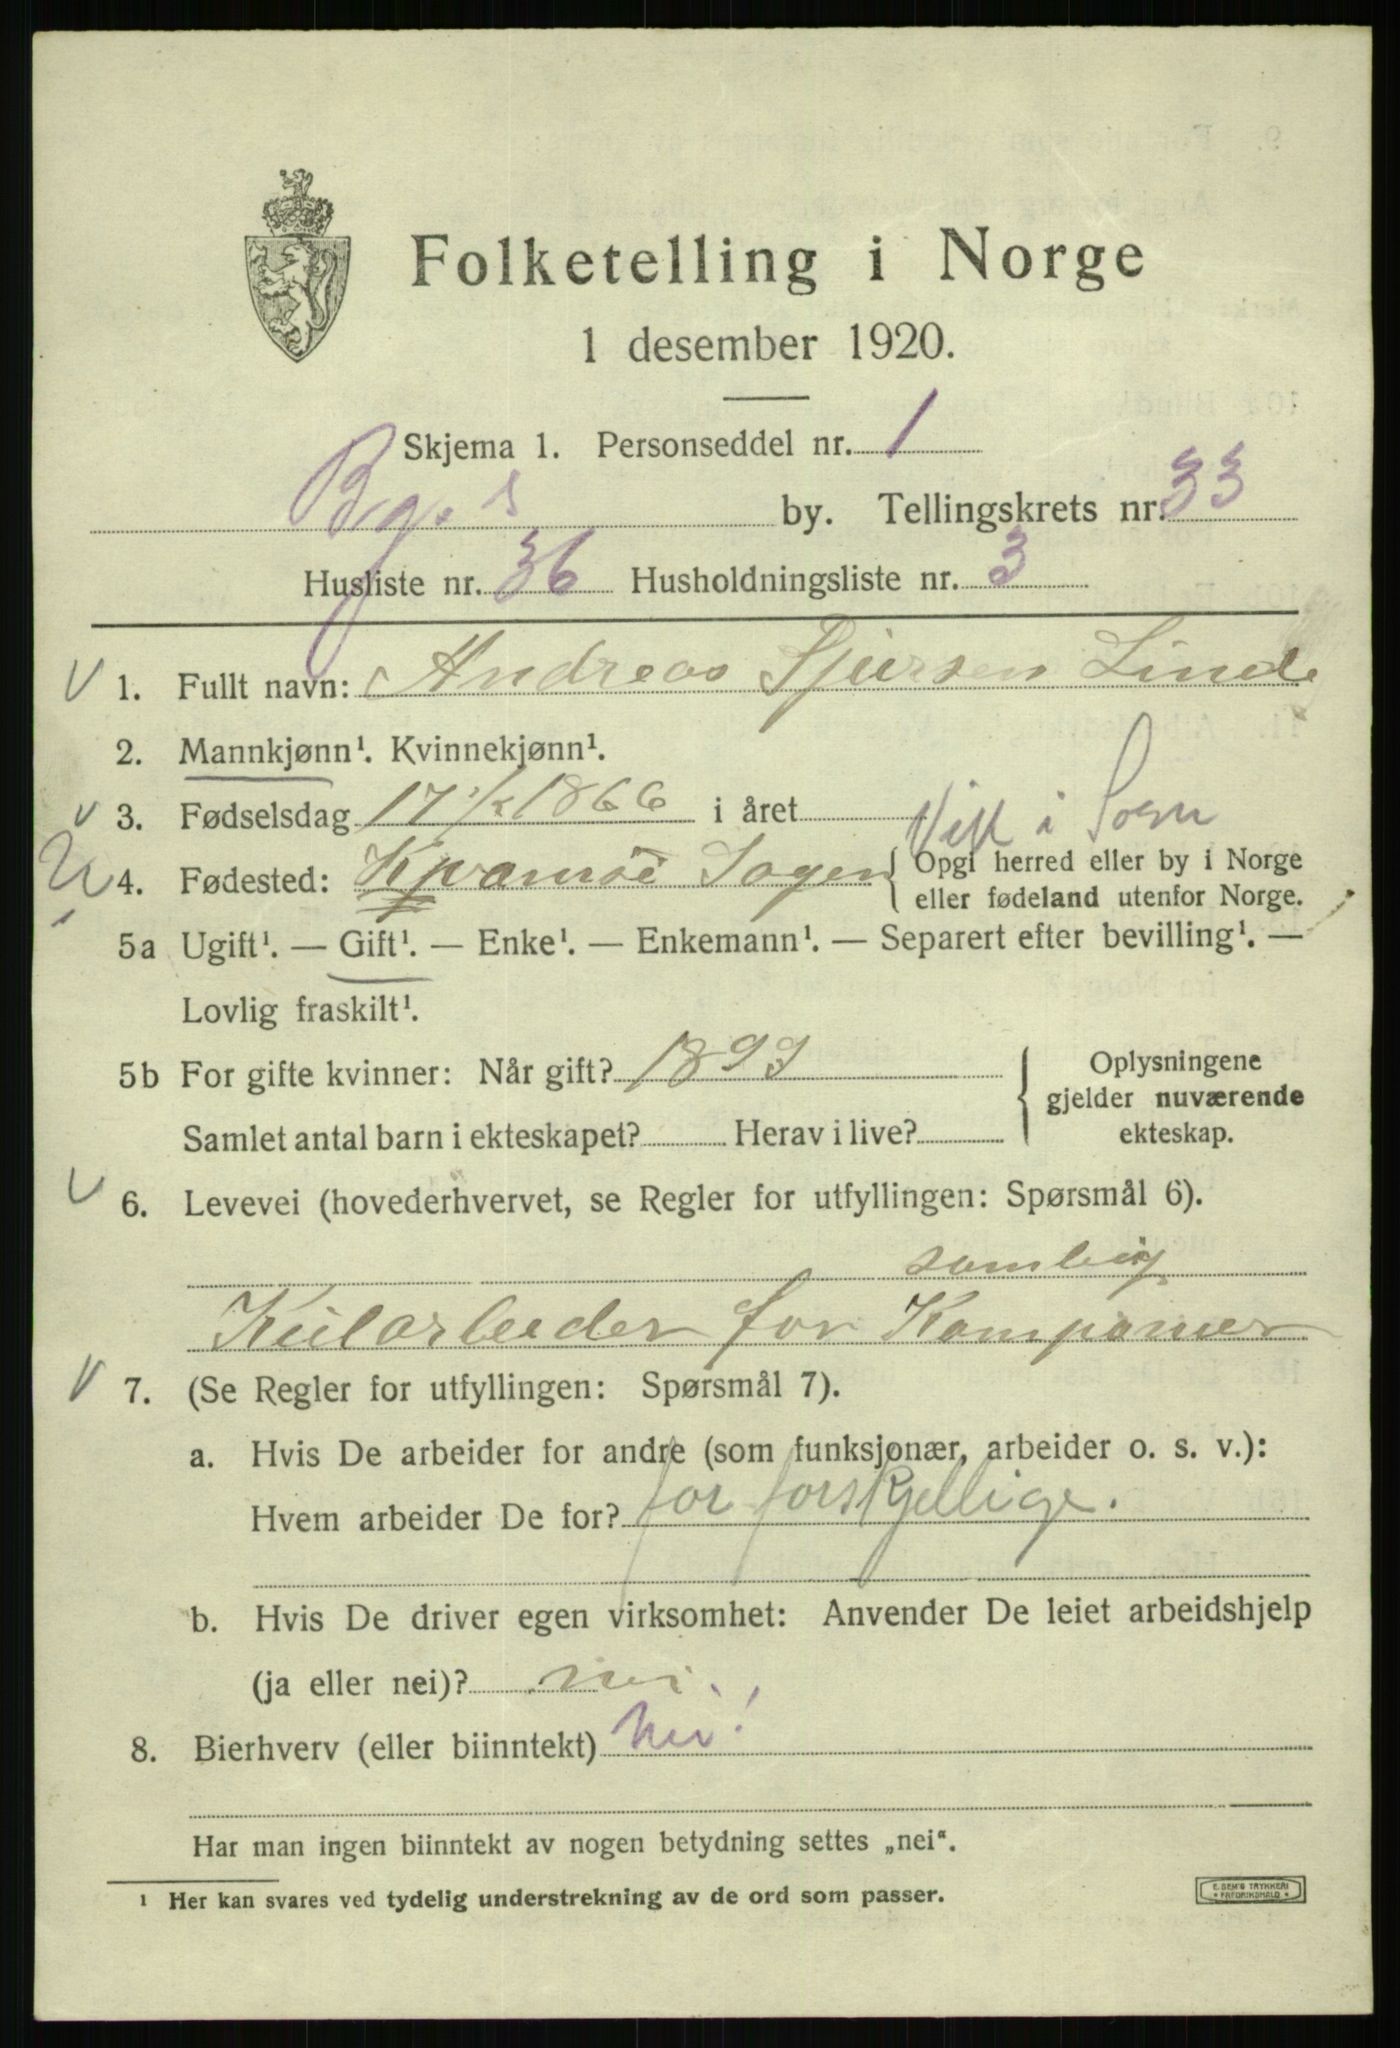 Folketelling i Norge
1 desember 1920.
Skjema 1. Personseddel nr. 1
by. Tellingskrets nr. 33
Husliste nr. 36 Husholdningsliste nr. 3
1. Fullt navn: Andreas Sjursen Linde
2. Mannkjønn¹. Kvinnekjønn¹.
3. Fødselsdag 17 1/2 1866 i året
Vik i Sogn
4. Fødested: Kvamsøi Sogen { Opgi herred eller by i Norge
eller fødeland utenfor Norge.
5a Ugift¹. — Gift¹. — Enke¹. — Enkemann¹. — Separert efter bevilling¹. —
Lovlig fraskilt¹.
5b For gifte kvinner: Når gift? 1893
Samlet antal barn i ekteskapet? Herav i live?
Oplysningene
gjelder nuværende
ekteskap.
6. Levevei (hovederhvervet, se Regler for utfyllingen: Spørsmål 6).
Kularbeider for
7. (Se Regler for utfyllingen: Spørsmål 7).
a. Hvis De arbeider for andre (som funksjonær, arbeider o. s. v.):
Hvem arbeider De for? for forskjellige.
b. Hvis De driver egen virksomhet: Anvender De leiet arbeidshjelp
(ja eller nei)? nei.
8. Bierhverv (eller biinntekt) Nei!
Har man ingen biinntekt av nogen betydning settes „nei“.
¹ Her kan svares ved tydelig understrekning av de ord som passer.
E. SEM'S TRYKKERI
FREDRIKSHALD